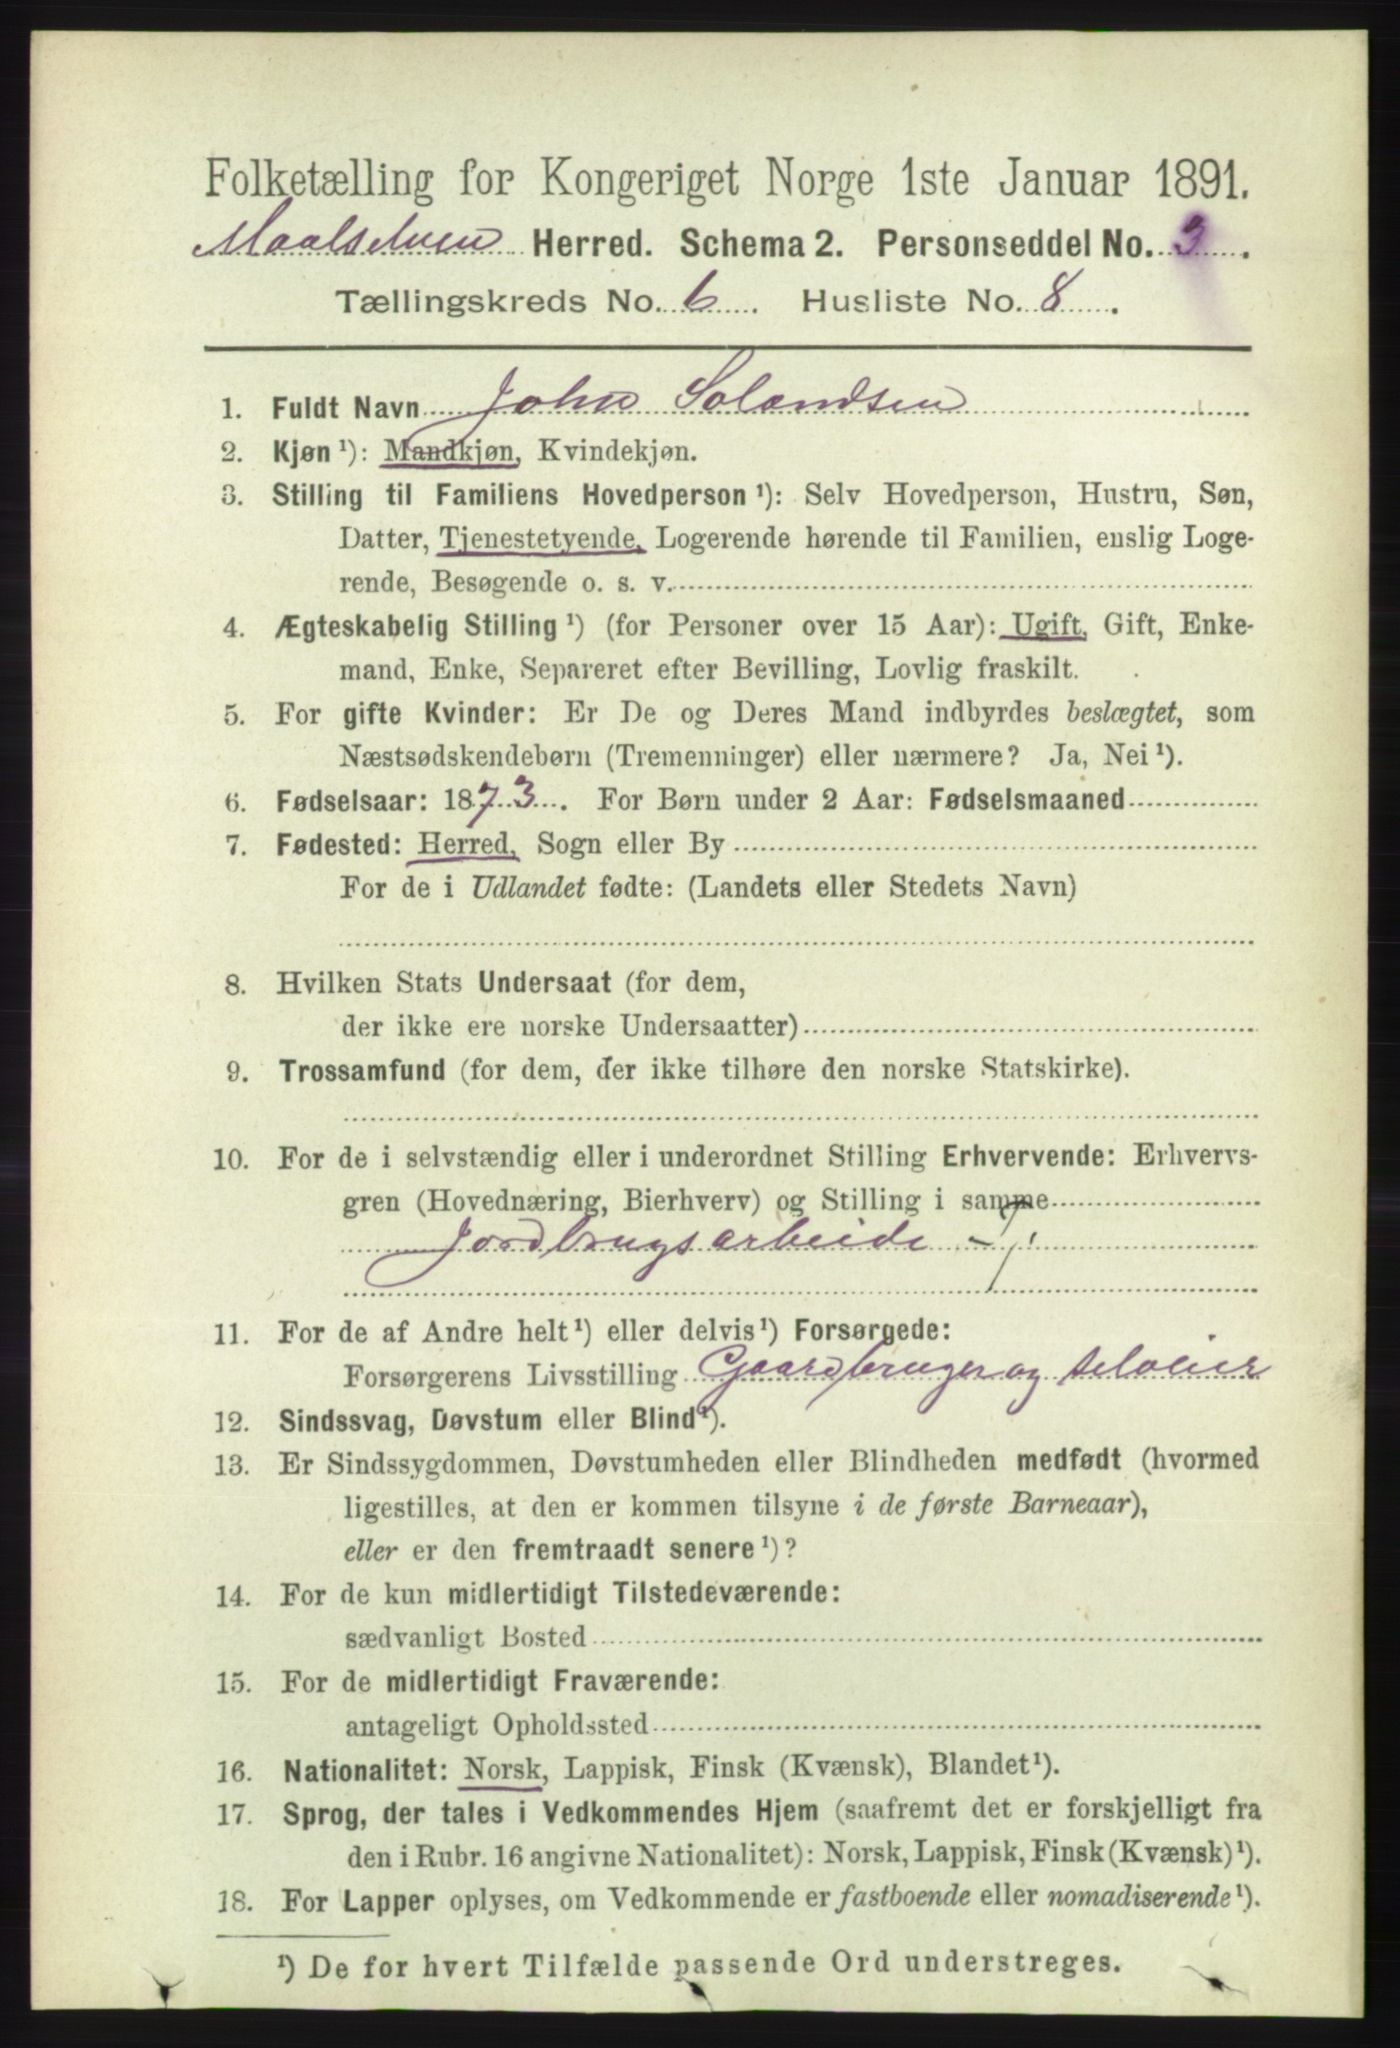 Folketælling for Kongeriget Norge 1ste Januar 1891.
Maalselven Herred. Schema 2. Personseddel No. 3.
Tællingskreds No. 6. Husliste No. 8.
1. Fuldt Navn John Solandsen
2. Kjøn ¹): Mandkjøn, Kvindekjøn.
3. Stilling til Familiens Hovedperson ¹): Selv Hovedperson, Hustru, Søn,
Datter, Tjenestetyende, Logerende hørende til Familien, enslig Loge-
rende, Besøgende o. s. v.
4. Ægteskabelig Stilling ¹) (for Personer over 15 Aar): Ugift, Gift, Enke-
mand, Enke, Separeret efter Bevilling, Lovlig fraskilt.
5. For gifte Kvinder: Er De og Deres Mand indbyrdes beslægtet, som
Næstsødskendebørn (Tremenninger) eller nærmere? Ja, Nei ¹).
6. Fødselsaar: 1873. For Børn under 2 Aar: Fødselsmaaned
7. Fødested: Herred, Sogn eller By
For de i Udlandet fødte: (Landets eller Stedets Navn)
8. Hvilken Stats Undersaat (for dem,
der ikke ere norske Undersaatter)
9. Trossamfund (for dem, der ikke tilhøre den norske Statskirke).
10. For de i selvstændig eller i underordnet Stilling Erhvervende: Erhvervs-
gren (Hovednæring, Bierhverv) og Stilling i samme
Jordbrugsarbeide
11. For de af Andre helt ¹) eller delvis ¹) Forsørgede:
Forsørgerens Livsstilling Gaardbruger og selveier
12. Sindssvag, Døvstum eller Blind ¹).
13. Er Sindssygdommen, Døvstumheden eller Blindheden medfødt (hvormed
ligestilles, at den er kommen tilsyne i de første Barneaar),
eller er den fremtraadt senere ¹)?
14. For de kun midlertidigt Tilstedeværende:
sædvanligt Bosted
15. For de midlertidigt Fraværende:
antageligt Opholdssted
16. Nationalitet: Norsk, Lappisk, Finsk (Kvænsk), Blandet ¹).
17. Sprog, der tales i Vedkommendes Hjem (saafremt det er forskjelligt fra
den i Rubr. 16 angivne Nationalitet): Norsk, Lappisk, Finsk (Kvænsk) ¹).
18. For Lapper oplyses, om Vedkommende er fastboende eller nomadiserende ¹).
¹) De for hvert Tilfælde passende Ord understreges.